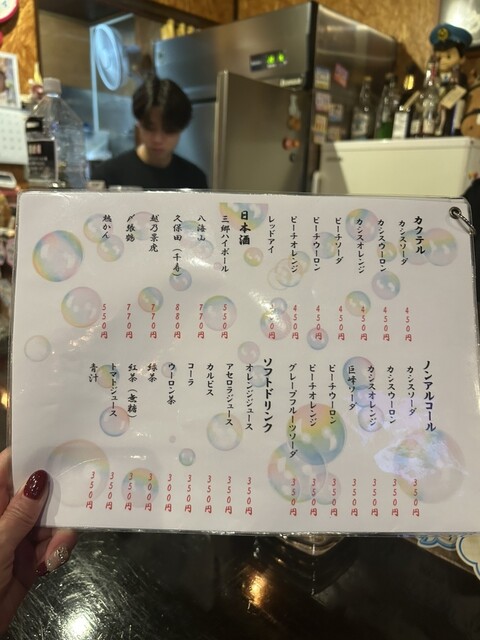 カクテル
カシスソーダ 450円
カシスウーロン 450円
カシスオレンジ 450円
ピーチソーダ 450円
ピーチウーロン 450円
ピーチオレンジ 450円
レッドアイ
日本酒
三郷ハイボール 550円
八海山 770円
久保田(千寿) 880円
越乃景虎 770円
〆張鶴 770円
熱かん 550円
ノンアルコール
カシスソーダ 350円
カシスウーロン 350円
カシスオレンジ 350円
巨峰ソーダ 350円
ピーチウーロン 350円
ピーチオレンジ 350円
グレープフルーツソーダ 350円
ソフトドリンク
オレンジジュース 350円
アセロラジュース 350円
カルピス 350円
コーラ 350円
ウーロン茶 300円
緑茶 300円
紅茶(無糖) 350円
トマトジュース 350円
青汁 350円